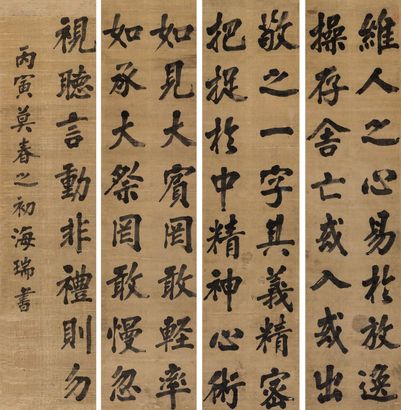 維人之心易於放逸
操存舍亡或入或出
敬之一字其義精密
把捉於中精神心術
如見大賓罔敢輕率
如承大祭罔敢慢忽
視聽言動非禮則勿
丙寅莫春之初海瑞書